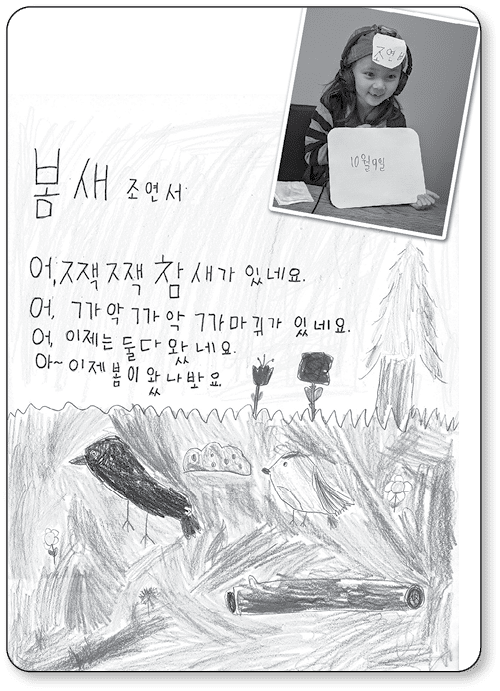 조연서
10월9일
봄새 조연서
어, 짹짹 참새가 있네요.
어, 까악 까악 까마귀가 있네요.
어, 이제는 둘다 왔네요.
아~ 이제 봄이 왔나봐요